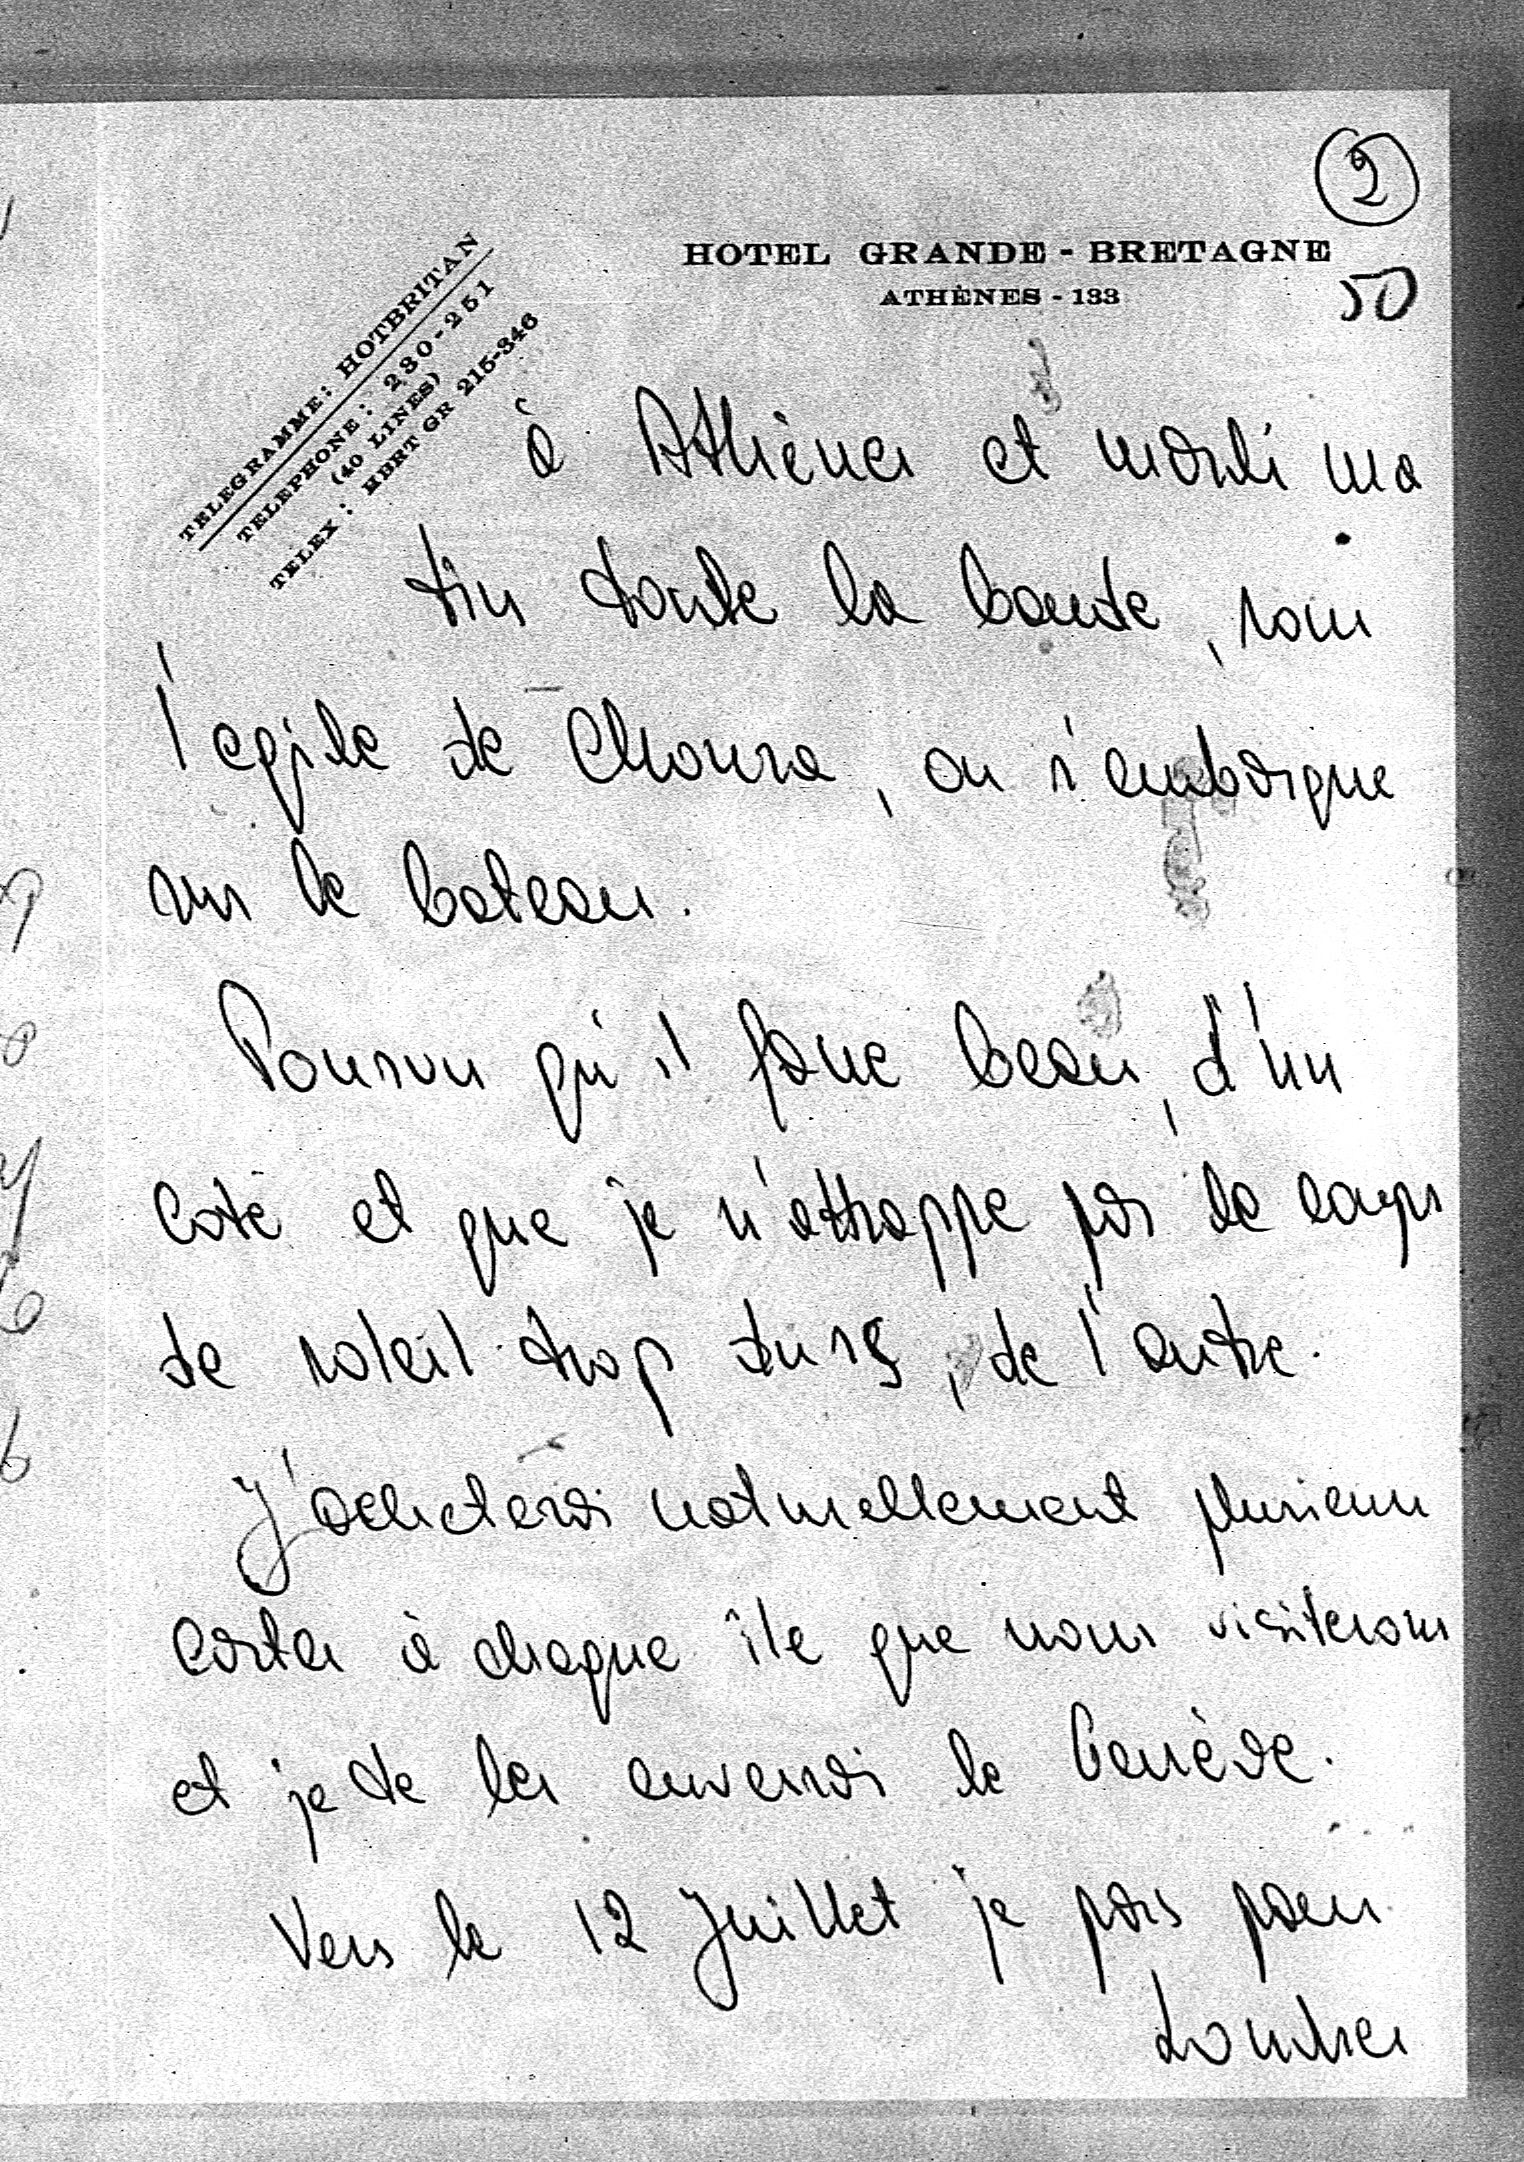 2
HOTEL GRANDE - BRETAGNE
ATHÈNES - 133
50
TELEGRAMME: HOTBRITAN
TELEPHONE: 230-251
(40 LINES)
TELEX: HBRT GR 215-346
à Athènes et mardi ma
tin toute la bande, sous
l'egide de Choura, on s'embarque
sur le bateau.
Pourvu qu'il fasse beau, d'un
coté et que je n'attrappe pas de coups
de soleil trop durs, de l'autre.
J'acheterai naturellement plusieurs
cartes à chaque île que nous visiterons
et je te les enverrai de Genève.
Vers le 12 Juillet je pars pour
Londres